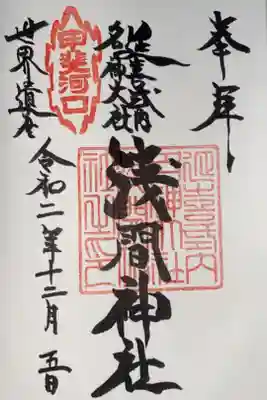 奉拝
延喜式内
名神大社
浅間神社
甲斐河口
世界遺産
令和二年十二月五日